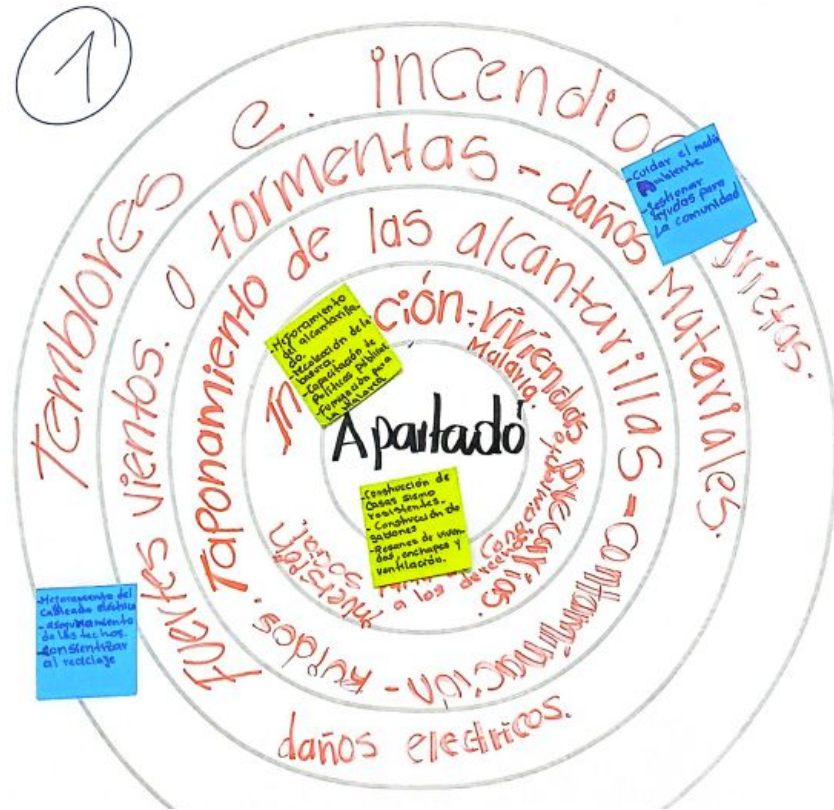 1
Temblores e. incendio
grietas.
Fuertes vientos. o tormentas - daños Matariales.
daños electricos.
Taponamiento de las alcantarillas - contaminación - Ruidos.
ción - viviendas precarias.
Malaria.
inversión
social.
a los derechos
Apartadó
- Cuidar el medio
Ambiente
- Gestionar
ayudas para
La comunidad
- Mejoramiento
del alcantarilla-
do.
- Recolección de la
basura.
- Capacitación de
Políticas públicas
- Fumigación para
la Malaria
- Construcción de
Casas sismo
resistentes.
- Construcción de
gabiones
- Resanes de vivien-
das, enchapes y
ventilación.
- Mejoramiento del
Cableado eléctrico
- aseguramiento
de los techos.
- Consientizar
al reciclaje